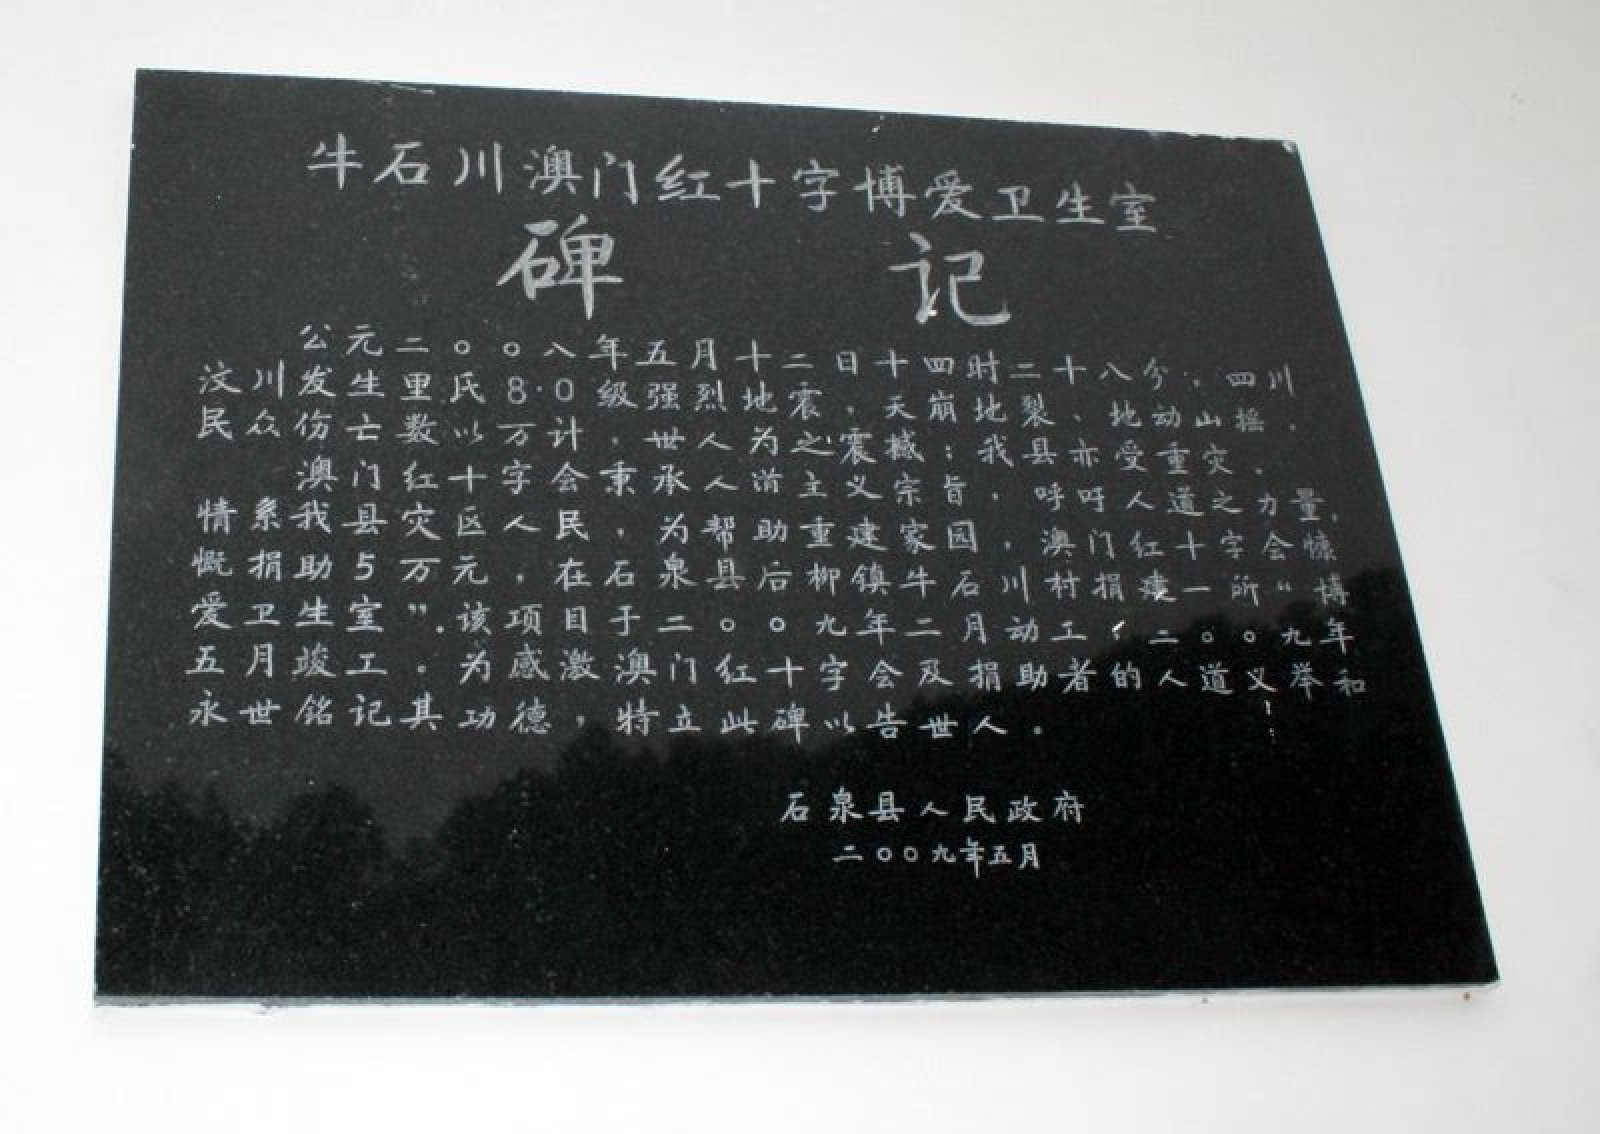 牛石川澳门红十字博爱卫生室
碑记
公元二○○八年五月十二日十四时二十八分，四川
汶川发生里氏8.0级强烈地震，天崩地裂、地动山摇，
民众伤亡数以万计，世人为之震撼；我县亦受重灾。
澳门红十字会秉承人道主义宗旨，呼吁人道之力量，
情系我县灾区人民，为帮助重建家园，澳门红十字会慷
慨捐助5万元，在石泉县后柳镇牛石川村捐建一所“博
爱卫生室”.该项目于二○○九年二月动工，二○○九年
五月竣工。为感激澳门红十字会及捐助者的人道义举和
永世铭记其功德，特立此碑以告世人。
石泉县人民政府
二○○九年五月